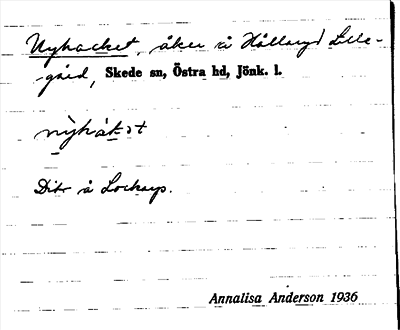 Nyhacket, åker å Hållaryd Lille-
gård, Skede sn, Östra hd, Jönk. l.
nỳhákət
Dito å Lockarp.
Annalisa Anderson 1936